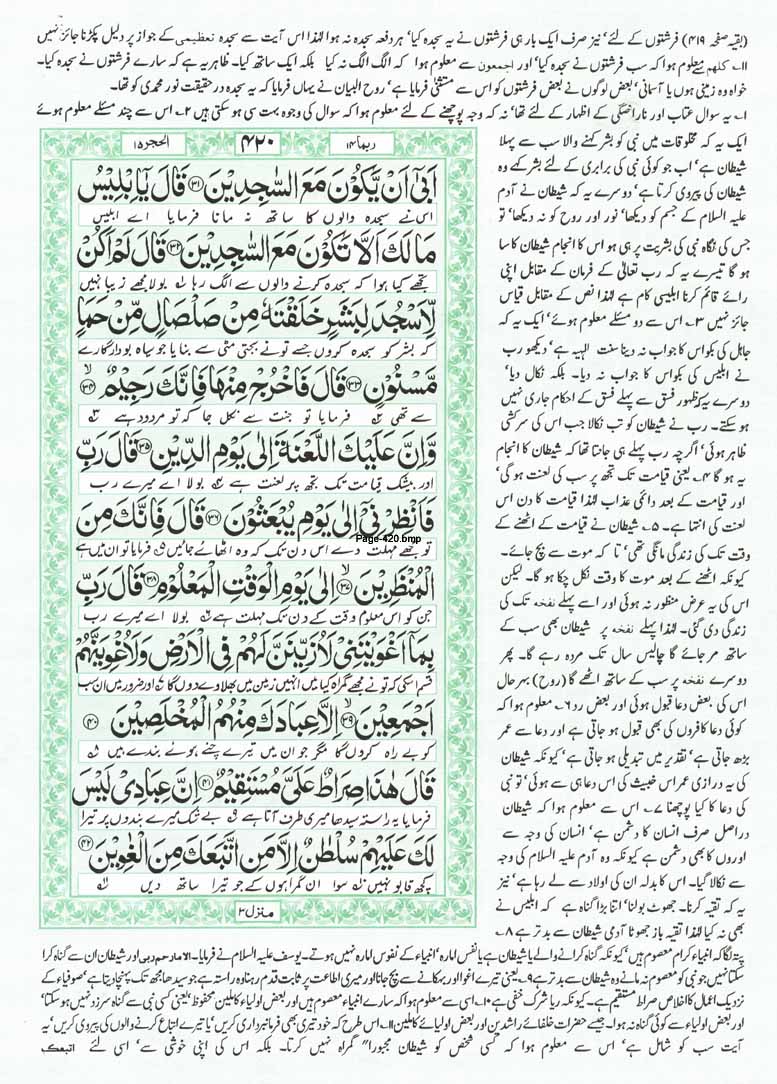 (بقیہ صفحہ ۴۱۹) فرشتوں کے لئے' نیز صرف ایک بار ہی فرشتوں نے یہ سجدہ کیا' ہر دفعہ سجدہ نہ ہوا لہٰذا اس آیت سے سجدہ تعظیمی کے جواز پر دلیل پکڑنا جائز نہیں
۱۱۔ کلھم سے معلوم ہوا کہ سب فرشتوں نے سجدہ کیا' اور اجمعون سے معلوم ہوا کہ الگ الگ نہ کیا بلکہ ایک ساتھ کیا۔ ظاہر یہ ہے کہ سارے فرشتوں نے سجدہ کیا۔
خواہ وہ زمینی ہوں یا آسمانی' بعض لوگوں نے بعض فرشتوں کو اس سے مستثنیٰ فرمایا ہے' روح البیان نے یہاں فرمایا کہ یہ سجدہ درحقیقت نور محمدی کو تھا۔
۱۔ یہ سوال عتاب اور ناراضگی کے اظہار کے لئے تھا' نہ کہ وجہ پوچھنے کے لئے معلوم ہوا کہ سوال کی وجوہ بہت سی ہو سکتی ہیں ۲۔ اس سے چند مسئلے معلوم ہوئے
ایک یہ کہ مخلوقات میں نبی کو بشر کہنے والا سب سے پہلا
شیطان ہے' اب جو کوئی نبی کی برابری کے لئے بشر کہے وہ
شیطان کی پیروی کرتا ہے' دوسرے یہ کہ شیطان نے آدم
علیہ السلام کے جسم کو دیکھا' نور اور روح کو نہ دیکھا' تو
جس کی نگاہ نبی کی بشریت پر ہی ہو اس کا انجام شیطان کا سا
ہو گا تیسرے یہ کہ رب تعالیٰ کے فرمان کے مقابل اپنی
رائے قائم کرنا ابلیسی کام ہے لہٰذا نص کے مقابل قیاس
جائز نہیں ۳۔ اس سے دو مسئلے معلوم ہوئے' ایک یہ کہ
جاہل کی بکواس کا جواب نہ دینا سنت الٰہیہ ہے' دیکھو رب
نے ابلیس کی بکواس کا جواب نہ دیا۔ بلکہ نکال دیا'
دوسرے یہ کہ ظہور فسق سے پہلے فسق کے احکام جاری نہیں
ہو سکتے۔ رب نے شیطان کو تب نکالا جب اس کی سرکشی
ظاہر ہوئی' اگرچہ رب پہلے ہی جانتا تھا کہ شیطان کا انجام
یہ ہو گا ۴۔ یعنی قیامت تک تجھ پر سب کی لعنت ہو گی'
اور قیامت کے بعد دائمی عذاب لہٰذا قیامت کا دن اس
لعنت کی انتہا ہے۔ ۵۔ شیطان نے قیامت کے اٹھنے کے
وقت تک کی زندگی مانگی تھی' تا کہ موت سے بچ جائے۔
کیونکہ اٹھنے کے بعد موت کا وقت نکل چکا ہو گا۔ لیکن
اس کی یہ عرض منظور نہ ہوئی اور اسے پہلے نفخہ تک کی
زندگی دی گئی۔ لہٰذا پہلے نفخہ پر شیطان بھی سب کے
ساتھ مر جائے گا چالیس سال تک مردہ رہے گا۔ پھر
دوسرے نفخہ پر سب کے ساتھ اٹھے گا (روح) بہرحال
اس کی بعض دعا قبول ہوئی اور بعض رد ۶۔ معلوم ہوا کہ
کوئی دعا کافروں کی بھی قبول ہو جاتی ہے اور دعا سے عمر
بڑھ جاتی ہے' تقدیر میں تبدیلی ہو جاتی ہے' کیونکہ شیطان
کی یہ درازی عمر اس خبیث کی اس دعا ہی سے ہوئی' تو نبی
کی دعا کا کیا پوچھنا ۷۔ اس سے معلوم ہوا کہ شیطان
دراصل صرف انسان کا دشمن ہے' انسان کی وجہ سے
اوروں کا بھی دشمن ہے کیونکہ وہ آدم علیہ السلام کی وجہ
سے نکالا گیا۔ اس کا بدلہ ان کی اولاد سے لے رہا ہے' نیز
یہ کہ تقیہ کرنا۔ جھوٹ بولنا' اتنا بڑا گناہ ہے کہ ابلیس نے
بھی نہ کیا لہٰذا تقیہ باز جھوٹا آدمی شیطان سے بدتر ہے ۸۔
ربما ۱۴ ۴۲۰ الحجر ۱۵
اَبٰۤى اَنْ یَّكُوْنَ مَعَ السّٰجِدِیْنَ ۳۱ قَالَ یٰۤاِبْلِیْسُ
اس نے سجدہ والوں کا ساتھ نہ مانا فرمایا اے ابلیس
مَا لَكَ اَلَّا تَكُوْنَ مَعَ السّٰجِدِیْنَ ۳۲ قَالَ لَمْ اَكُنْ
تجھے کیا ہوا کہ سجدہ کرنے والوں سے الگ رہا بولا مجھے زیبا نہیں
لِّاَسْجُدَ لِبَشَرٍ خَلَقْتَهٗ مِنْ صَلْصَالٍ مِّنْ حَمَاٍ
کہ بشر کو سجدہ کروں جسے تو نے بجتی مٹی سے بنایا جو سیاہ بودار گارے
مَّسْنُوْنٍ ۳۳ قَالَ فَاخْرُجْ مِنْهَا فَاِنَّكَ رَجِیْمٌ ۳۴
سے تھی فرمایا تو جنت سے نکل جا کہ تو مردود ہے
وَّاِنَّ عَلَیْكَ اللَّعْنَةَ اِلٰى یَوْمِ الدِّیْنِ ۳۵ قَالَ رَبِّ
اور بیشک قیامت تک تجھ پر لعنت ہے بولا اے میرے رب
فَاَنْظِرْنِیْۤ اِلٰى یَوْمِ یُبْعَثُوْنَ ۳۶ قَالَ فَاِنَّكَ مِنَ
Page-420.bmp
تو مجھے مہلت دے اس دن تک کہ وہ اٹھائے جائیں فرمایا تو ان میں ہے
الْمُنْظَرِیْنَ ۳۷ اِلٰى یَوْمِ الْوَقْتِ الْمَعْلُوْمِ ۳۸ قَالَ رَبِّ
جن کو اس معلوم وقت کے دن تک مہلت ہے بولا اے میرے رب
بِمَاۤ اَغْوَیْتَنِیْ لَاُزَیِّنَنَّ لَهُمْ فِی الْاَرْضِ وَلَاُغْوِیَنَّهُمْ
قسم اسکی کہ تو نے مجھے گمراہ کیا میں انہیں زمین میں بھلاوے دوں گا اور ضرور میں ان سب
اَجْمَعِیْنَ ۳۹ اِلَّا عِبَادَكَ مِنْهُمُ الْمُخْلَصِیْنَ ۴۰
کو بے راہ کروں گا مگر جو ان میں تیرے چنے ہوئے بندے ہیں
قَالَ هٰذَا صِرَاطٌ عَلَیَّ مُسْتَقِیْمٌ ۴۱ اِنَّ عِبَادِیْ لَیْسَ
فرمایا یہ راستہ سیدھا میری طرف آتا ہے بے شک میرے بندوں پر تیرا
لَكَ عَلَیْهِمْ سُلْطٰنٌ اِلَّا مَنِ اتَّبَعَكَ مِنَ الْغٰوِیْنَ ۴۲
کچھ قابو نہیں سوا ان گمراہوں کے جو تیرا ساتھ دیں
منزل ۳
پتہ لگا کہ انبیاء کرام معصوم ہیں' کیونکہ گناہ کرانے والے یا شیطان ہے یا نفس امارہ' انبیاء کے نفوس امارہ نہیں ہوتے۔ یوسف علیہ السلام نے فرمایا۔ الا مارحم ربی اور شیطان ان سے گناہ کرا
سکتا نہیں جو نبی کو معصوم نہ مانے وہ شیطان سے بدتر ہے ۹۔ یعنی تیرے اغوا اور بہکانے سے بچ جانا اور میری اطاعت پر ثابت قدم رہنا وہ راستہ ہے جو سیدھا مجھ تک پہنچا دیتا ہے' صوفیاء کے
نزدیک اعمال کا اخلاص صراط مستقیم ہے۔ کیونکہ ریا شرک خفی ہے ۱۰۔ اسی سے معلوم ہوا کہ سارے انبیاء معصوم ہیں اور بعض اولیاء کاملین محفوظ' یعنی کسی نبی سے گناہ سرزد نہیں ہو سکتا'
اور بعض اولیاء سے کوئی گناہ نہ ہوا۔ جیسے حضرات خلفائے راشدین اور بعض اولیائے کاملین ۱۱۔ اس طرح کہ خود تیری بھی فرمانبرداری کریں' یا تیرے اتباع کرنے والوں کی پیروی کریں' یہ
آیت سب کو شامل ہے' اس سے معلوم ہوا کہ کسی شخص کو شیطان مجبوراً گمراہ نہیں کرتا۔ بلکہ اس کی اپنی خوشی سے' اسی لئے اتبعک